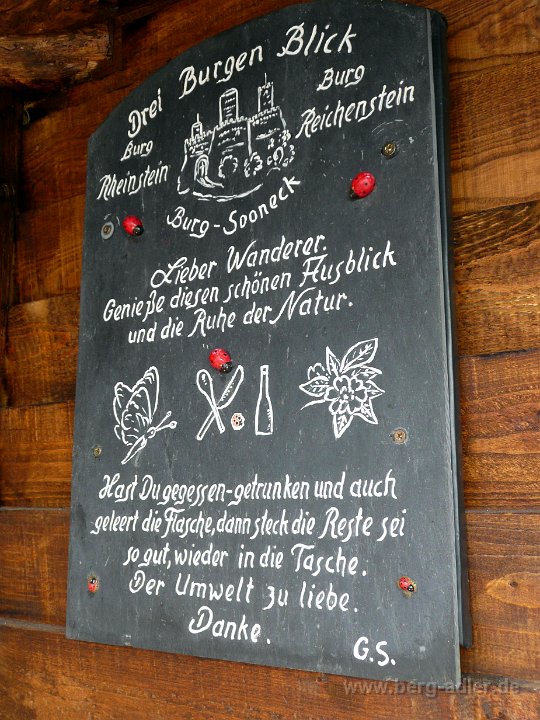 Drei Burgen Blick
Burg
Rheinstein
Burg
Reichenstein
Burg-Sooneck
Lieber Wanderer.
Genieße diesen schönen Ausblick
und die Ruhe der Natur.
Hast Du gegessen-getrunken und auch
geleert die Flasche, dann steck die Reste sei
so gut, wieder in die Tasche.
Der Umwelt zu liebe.
Danke.
G.S.
www.berg-adler.de